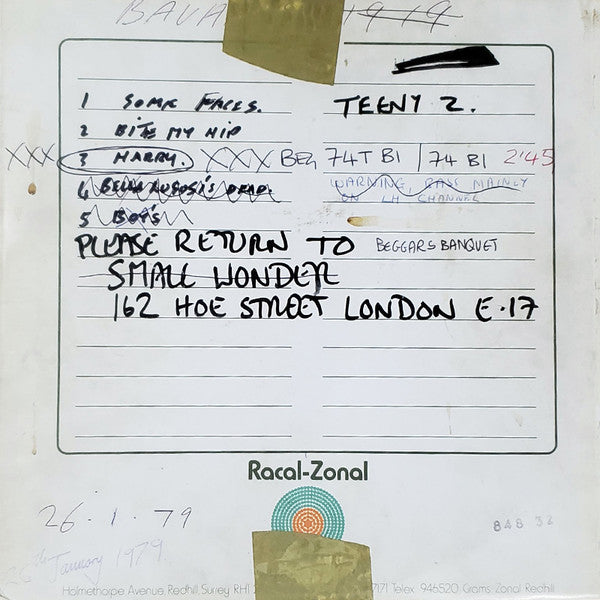 BAVA 1919
1 SOME FACES. TEENY 2.
2 BITE MY HIP
XXX 3 HARRY. XXX BEG 74T B1 / 74 B1 2'45
4 BELA LUGOSI'S DEAD. WARNING, BASS MAINLY
ON LH CHANNEL
5 BOYS
PLEASE RETURN TO BEGGARS BANQUET
SMALL WONDER
162 HOE STREET LONDON E.17
Racal-Zonal
26.1.79
848 32
26th January 1979.
Holmethorpe Avenue, Redhill, Surrey RH1 7171 Telex 946520 Grams: Zonal Redhill